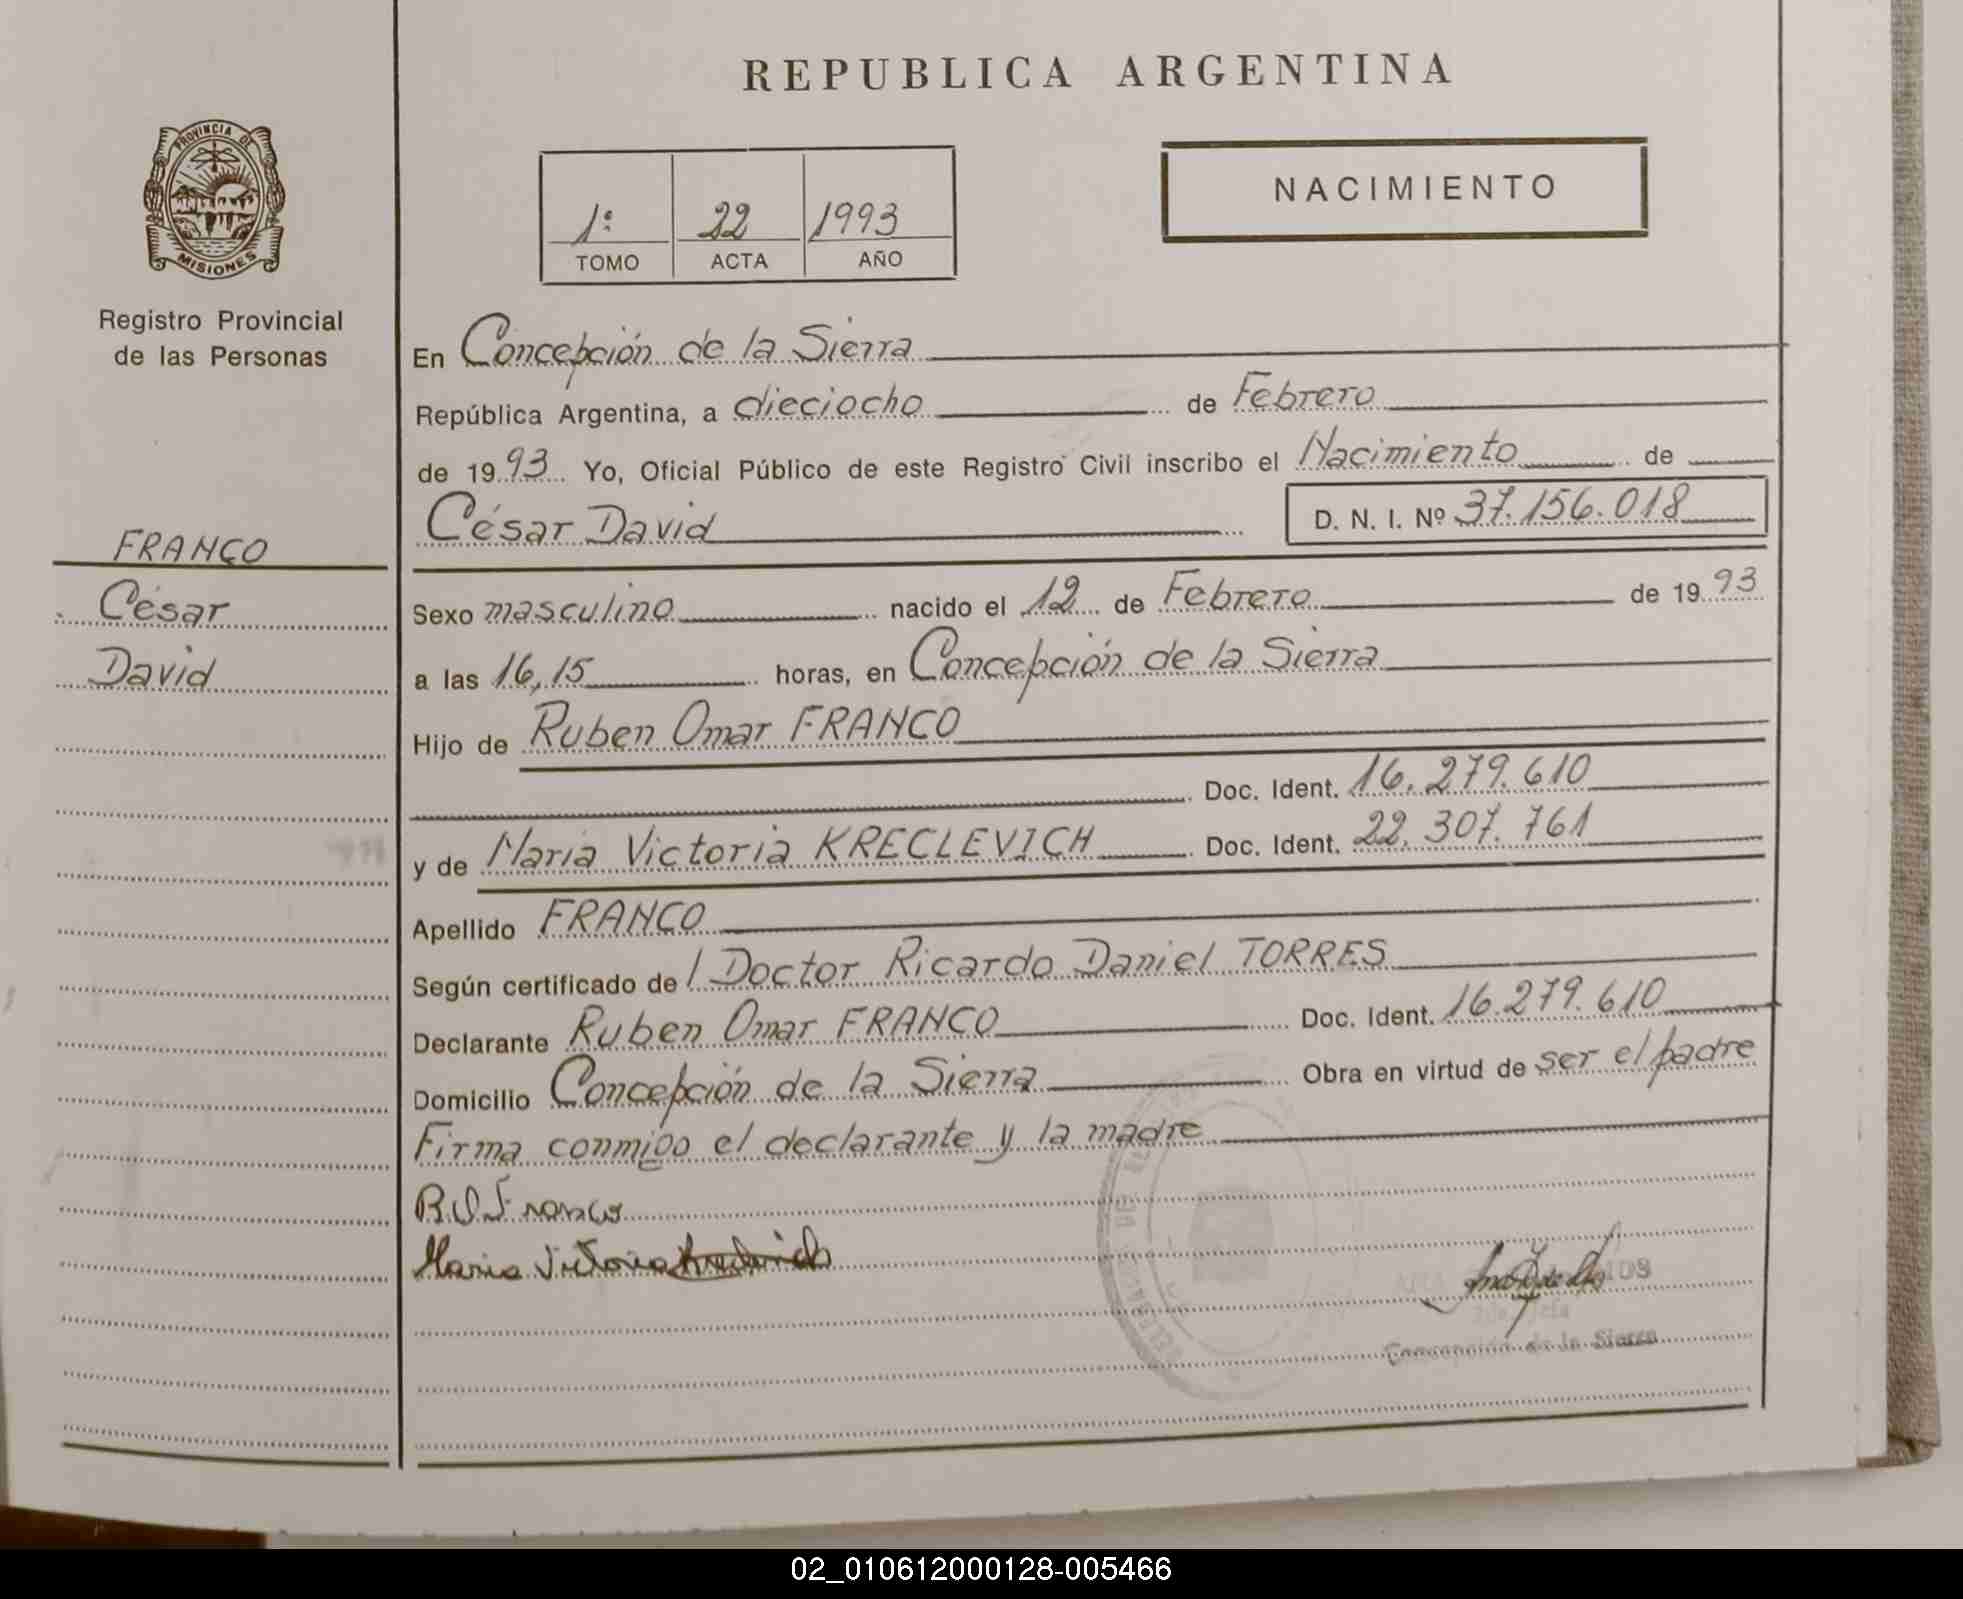 REPUBLICA ARGENTINA
PROVINCIA DE
MISIONES
Registro Provincial
de las Personas
1º 22 1993
TOMO ACTA AÑO
NACIMIENTO
FRANCO
César
David
En Concepción de la Sierra
República Argentina, a dieciocho de Febrero
de 1993 Yo, Oficial Público de este Registro Civil inscribo el Nacimiento de
César David D. N. I. Nº 37.156.018
Sexo masculino nacido el 12 de Febrero de 1993
a las 16,15 horas, en Concepción de la Sierra
Hijo de Ruben Omar FRANCO
Doc. Ident. 16.279.610
y de Maria Victoria KRECLEVICH Doc. Ident. 22.307.761
Apellido FRANCO
Según certificado de l Doctor Ricardo Daniel TORRES
Declarante Ruben Omar FRANCO Doc. Ident. 16.279.610
Domicilio Concepción de la Sierra Obra en virtud de ser el padre
Firma conmigo el declarante y la madre
R.O Franco
Maria Victoria
Concepción de la Sierra
02_010612000128-005466